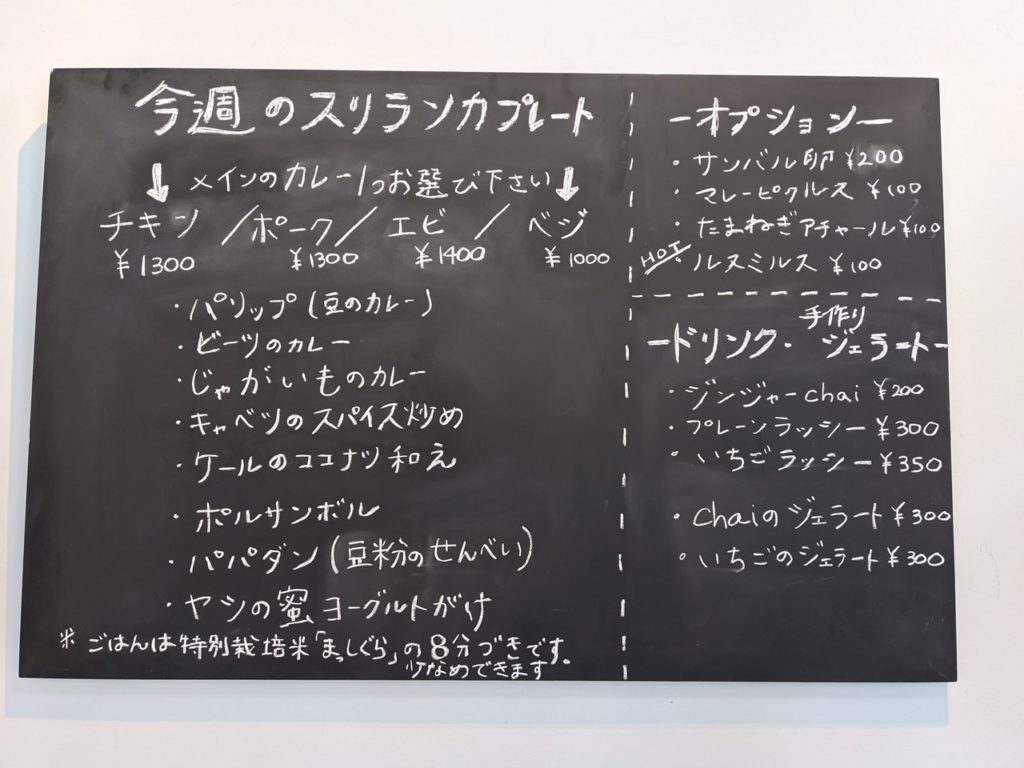 今週のスリランカプレート
↓メインのカレー1つお選び下さい↓
チキン/ポーク/エビ/ベジ
¥1300 ¥1300 ¥1400 ¥1000
・パリップ(豆のカレー)
・ビーツのカレー
・じゃがいものカレー
・キャベツのスパイス炒め
・ケールのココナツ和え
・ポルサンボル
・パパダン(豆粉のせんべい)
・ヤシの蜜ヨーグルトがけ
※ごはんは特別栽培米「まっしぐら」の8分づきです。
少なめできます
ーオプションー
・サンバル卵¥200
・マレーピクルス ¥100
・たまねぎアチャール¥100
HOT ルヌミルス ¥100
手作り
ードリンク・ジェラートー
・ジンジャーchai ¥200
・プレーンラッシー¥300
・いちごラッシー¥350
・chaiのジェラート¥300
・いちごのジェラート¥300